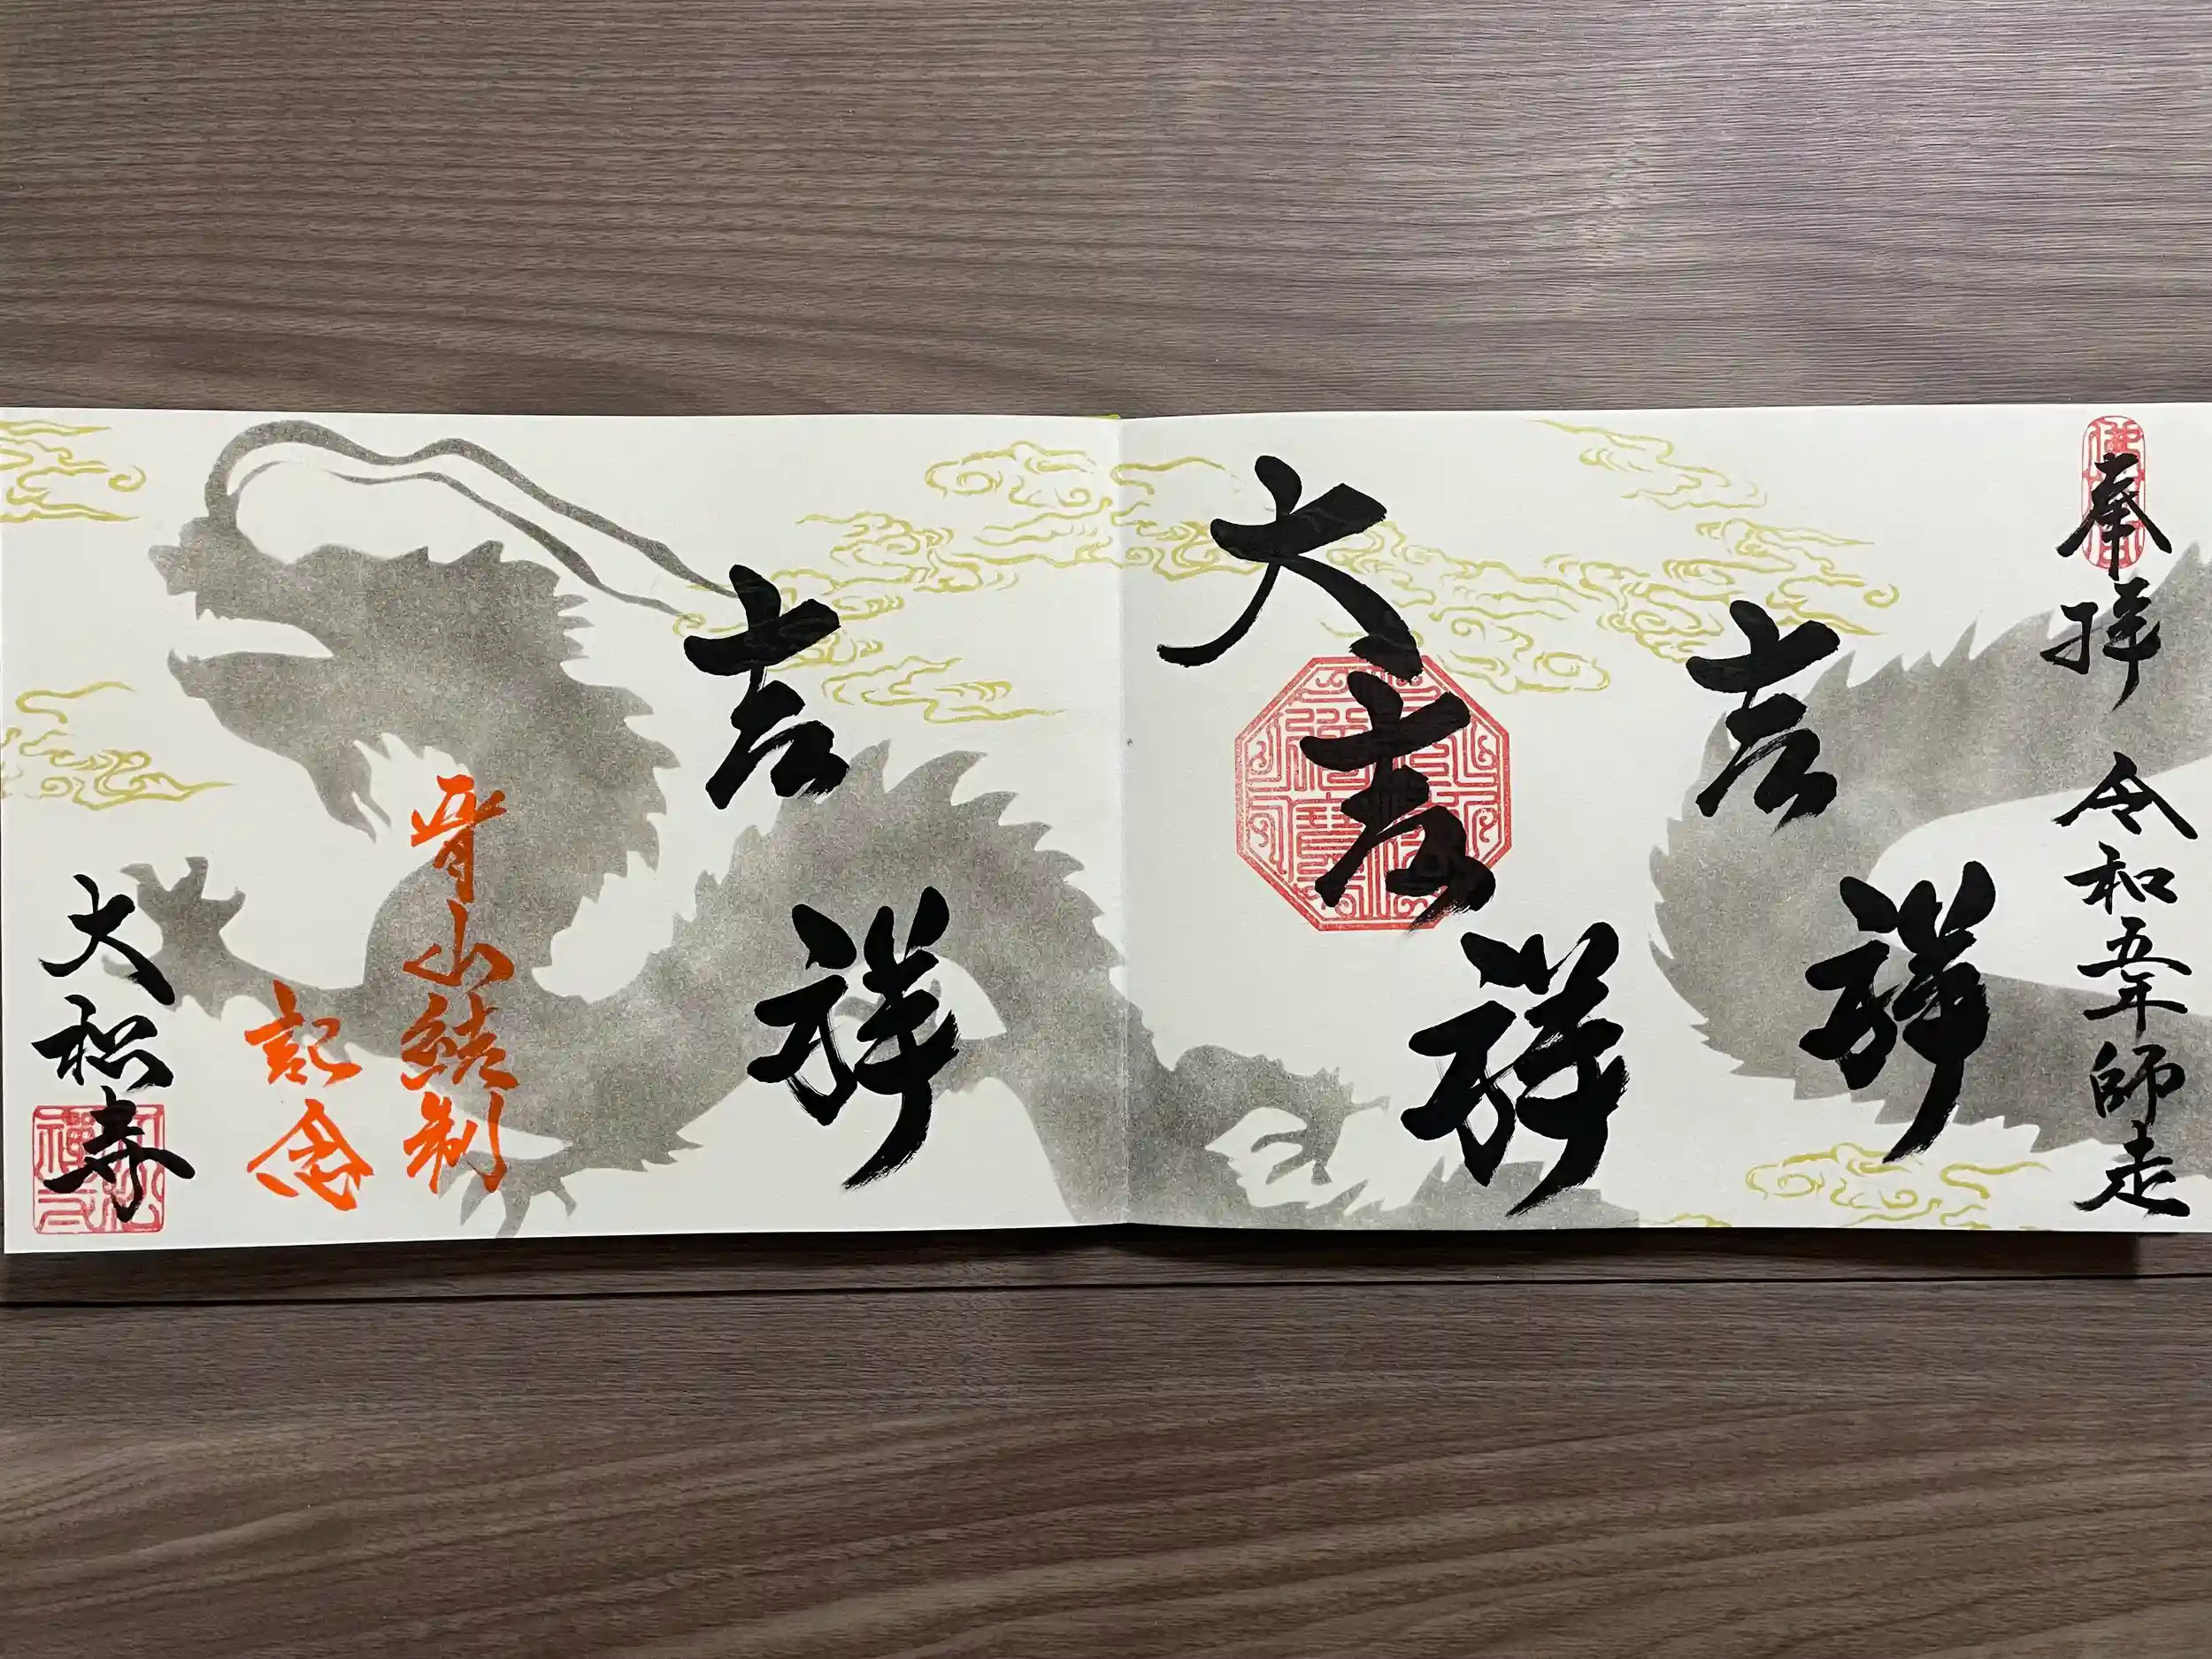 奉拝 令和五年師走
吉祥
大吉祥
吉祥
晋山結制
記念
大松寺